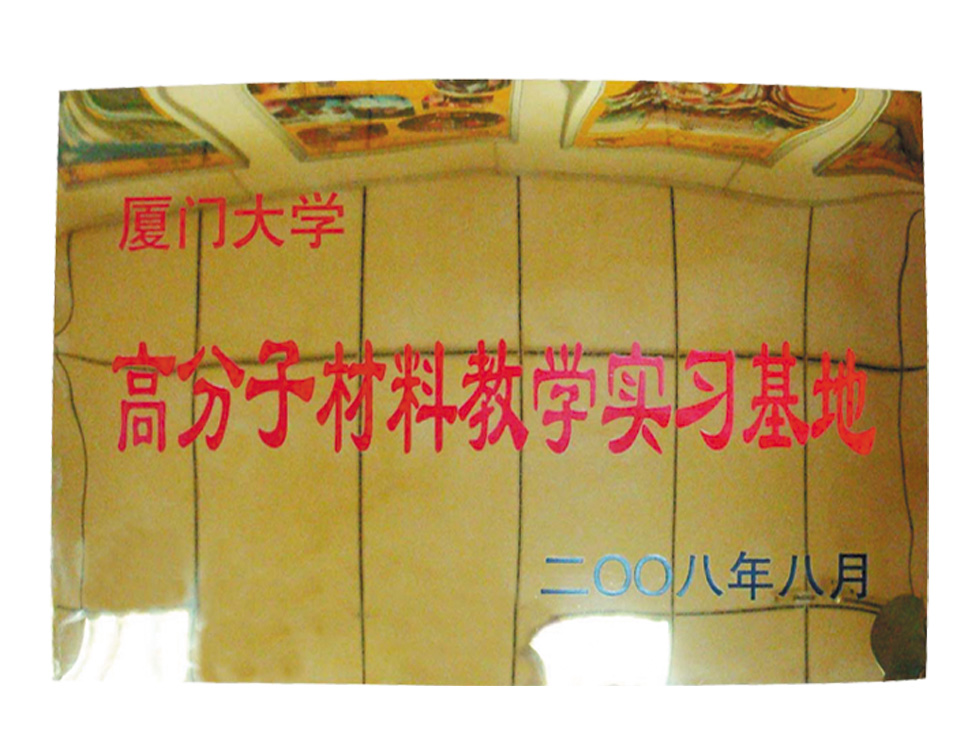 厦门大学
高分子材料教学实习基地
二〇〇八年八月